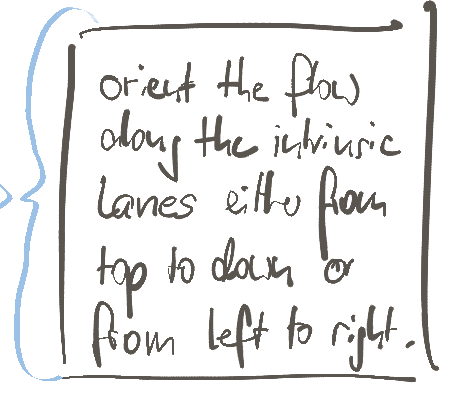 orient the flow
along the intrinsic
lanes either from
top to down or
from left to right.